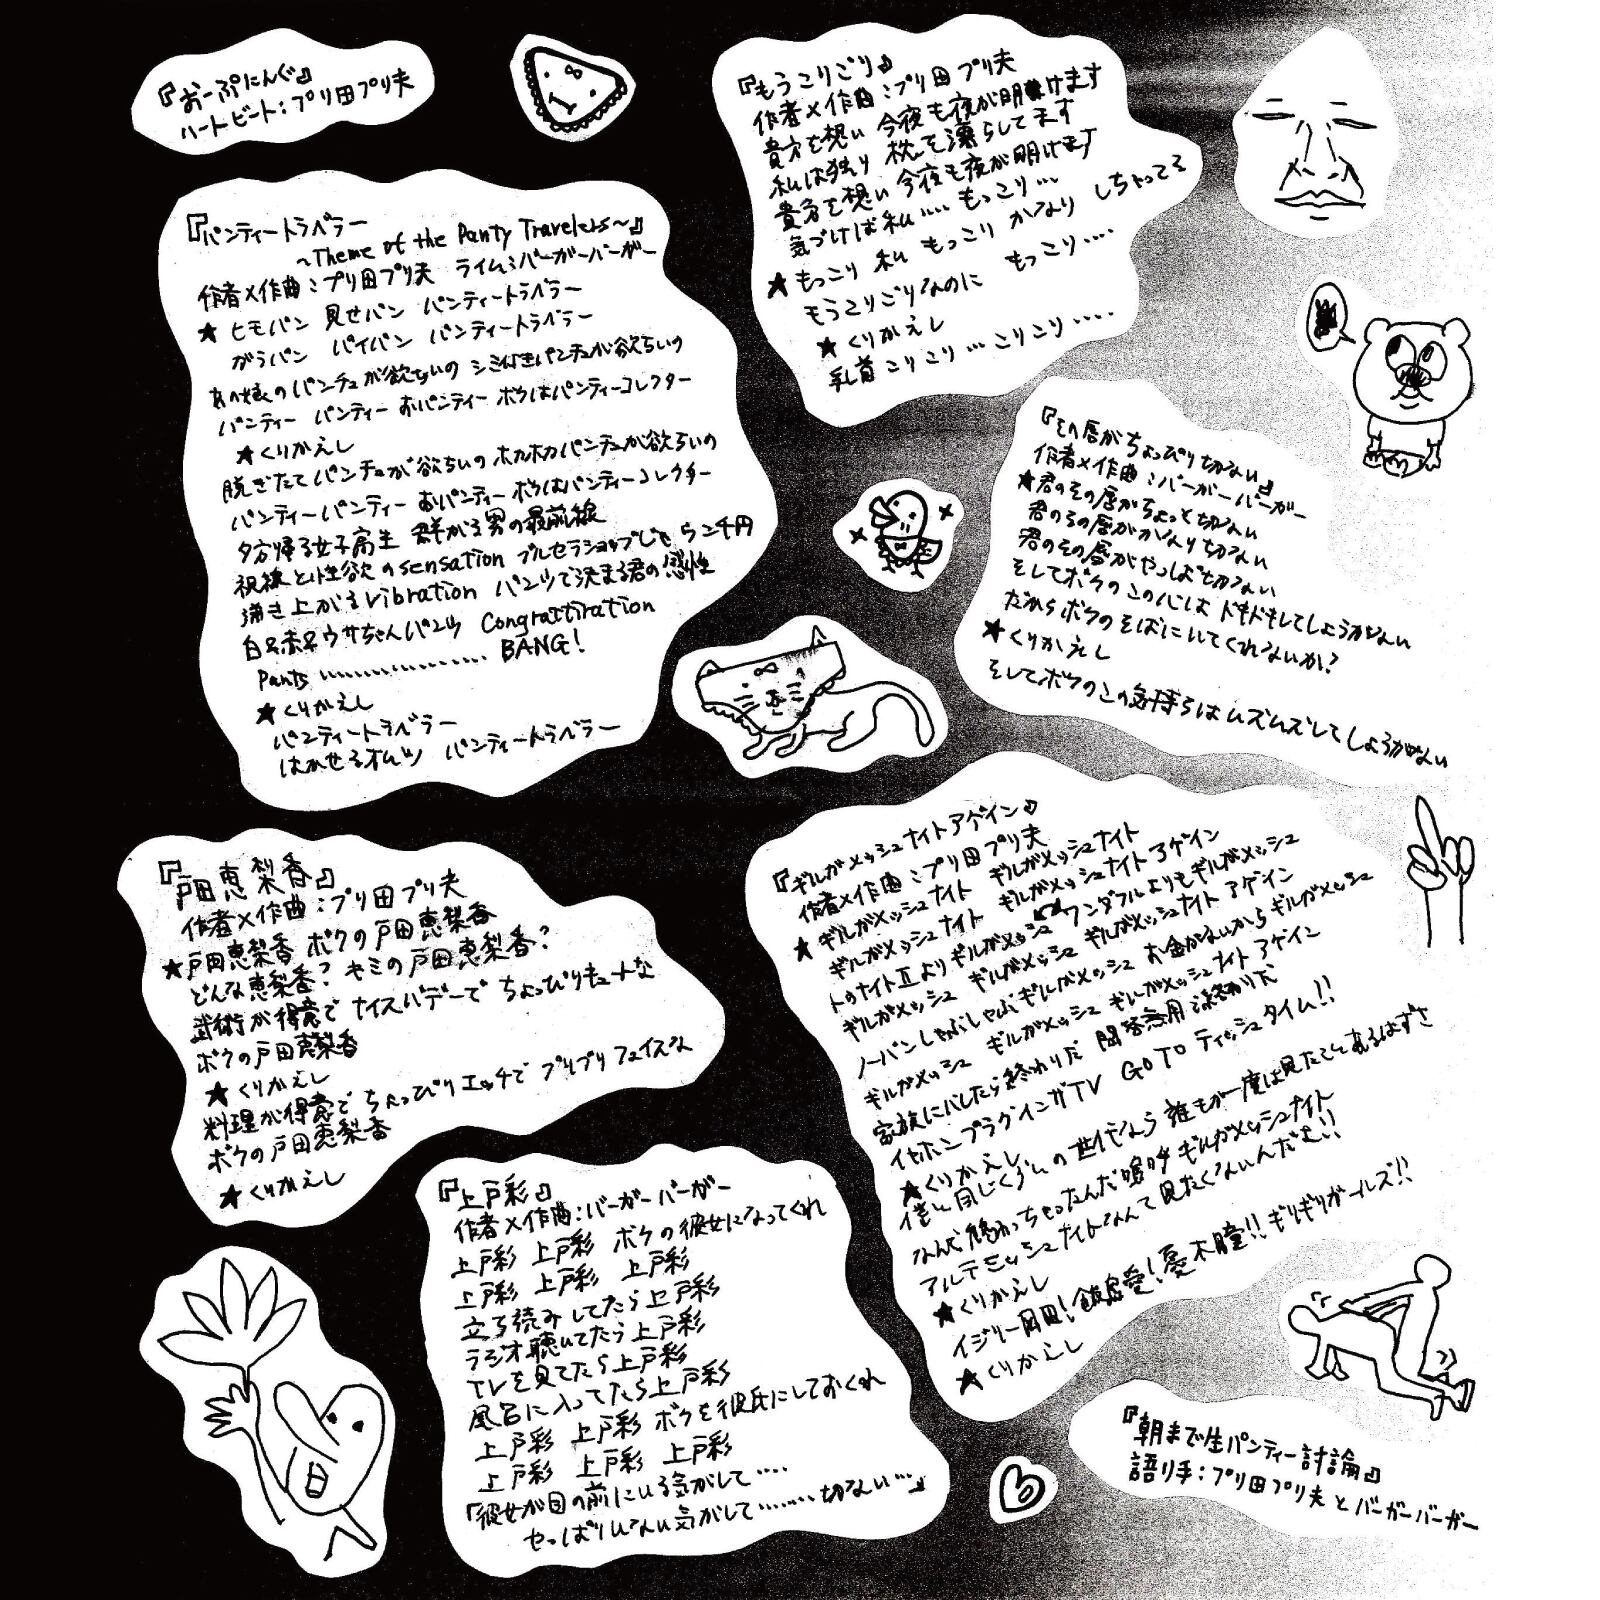 『おーぷにんぐ』
ハートビート：プリ田プリ夫
『パンティートラベラー
～Theme of the Panty Travelers～』
作者×作曲：プリ田プリ夫 ライム：バーガーバーガー
★ ヒモパン 見せパン パンティートラベラー
がらパン パイパン パンティートラベラー
あの娘のパンチュが欲ちいの シミ付きパンチュが欲ちいの
パンティー パンティー おパンティー ボクはパンティーコレクター
★くりかえし
脱ぎたてパンチュが欲ちいの ホカホカパンチュが欲ちいの
パンティーパンティー おパンティー ボクはパンティーコレクター
夕方帰る女子高生 群がる男の最前線
視線と性欲のsensation ブルセラショップじゃ 5二千円
沸き上がるvibration パンツで決まる君の感性
白 ウサちゃんパンツ Congratiration
Pants ………………… BANG!
★くりかえし
パンティートラベラー
はかせるオムツ パンティートラベラー
『戸田恵梨香』
作者×作曲：プリ田プリ夫
★戸田恵梨香 ボクの戸田恵梨香
どんな恵梨香？ キミの戸田恵梨香？
武術が得意で ナイスバデーで ちょっぴりキュートな
ボクの戸田恵梨香
★くりかえし
料理が得意で ちょっぴりエッチで プリプリフェイスな
ボクの戸田恵梨香
★くりかえし
『上戸彩』
作者×作曲：バーガーバーガー
上戸彩 上戸彩 ボクの彼女になってくれ
上戸彩 上戸彩 上戸彩
立ち読みしてたら上戸彩
ラジオ聴いてたら上戸彩
TVを見てたら上戸彩
風呂に入ってたら上戸彩
上戸彩 上戸彩 ボクを彼氏にしておくれ
上戸彩 上戸彩 上戸彩
「彼女が目の前にいる気がして‥‥
やっぱりいない気がして‥‥‥‥切ない…」
『もうこりごり』
作者×作曲：プリ田プリ夫
貴方を想い 今夜も夜が明けます
私は独り 枕を濡らしてます
貴方を想い 今夜も夜が明けます
気づけば私‥‥ もっこり…
★もっこり 私 もっこり かなり しちゃってる
もうこりごりなのに もっこり‥‥
★くりかえし
乳首 こりこり … こりこり ‥‥
『その唇がちょっぴり切ない』
作者×作曲：バーガーバーガー
★君のその唇がちょっと切ない
君のその唇がかなり切ない
君のその唇がやっぱ切ない
そしてボクのこの心は ドキドキしてしょうがない
だからボクのそばにいてくれないか？
★くりかえし
そしてボクのこの気持ちはムズムズしてしょうがない
『ギルガメッシュナイトアゲイン』
作者×作曲：プリ田プリ夫
★ギルガメッシュナイト ギルガメッシュナイト
ギルガメッシュナイト ギルガメッシュナイト アゲイン
トゥナイトⅡよりギルガメッシュ ワンダフルよりもギルガメッシュ
ギルガメッシュ ギルガメッシュ ギルガメッシュナイト アゲイン
ノーパンしゃぶしゃぶギルガメッシュ お金がないからギルガメッシュ
ギルガメッシュ ギルガメッシュ ギルガメッシュナイト アゲイン
家族にバレたら終わりだ 問答無用
イヤホンプラグインザTV GO TO ティッシュタイム!!
★くりかえし
僕と同じくらいの世代なら 誰もが一度は見たことあるはずさ
なんで終わっちゃったんだ嗚呼 ギルガメッシュナイト
アルテミッシュナイトなんて見たくないんだむ!!
★くりかえし
イジリー岡田! 飯島愛! 憂木瞳!! ギリギリガールズ!!
★くりかえし
『朝まで生パンティー討論』
語り手：プリ田プリ夫とバーガーバーガー